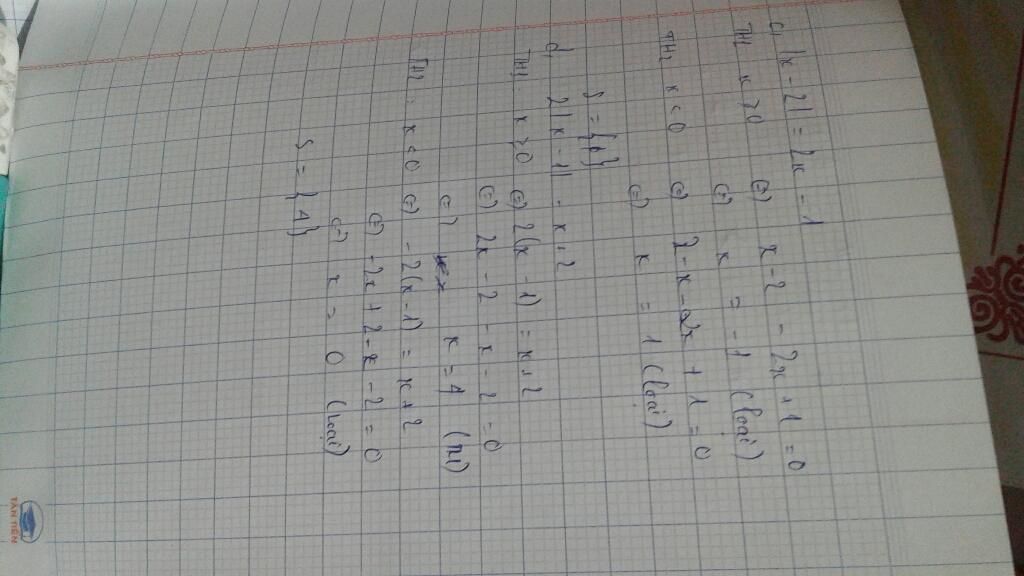 c, |x - 2| = 2x - 1
TH1 x ≥ 0 (=) x - 2 - 2x + 1 = 0
(=) x = -1 (loại)
TH2 x < 0 (=) 2 - x - 2x + 1 = 0
(=) x = 1 (loại)
S = {
d, 2|x - 1| - x = 2
TH1: x ≥ 0 (=) 2(x - 1) = x + 2
(=) 2x - 2 - x - 2 = 0
(=) x = 4 (TM)
TH2: x < 0 (=) -2(x - 1) = x + 2
(=) -2x + 2 - x - 2 = 0
(=) x = 0 (loại)
S = {4}
TÂN TIẾN